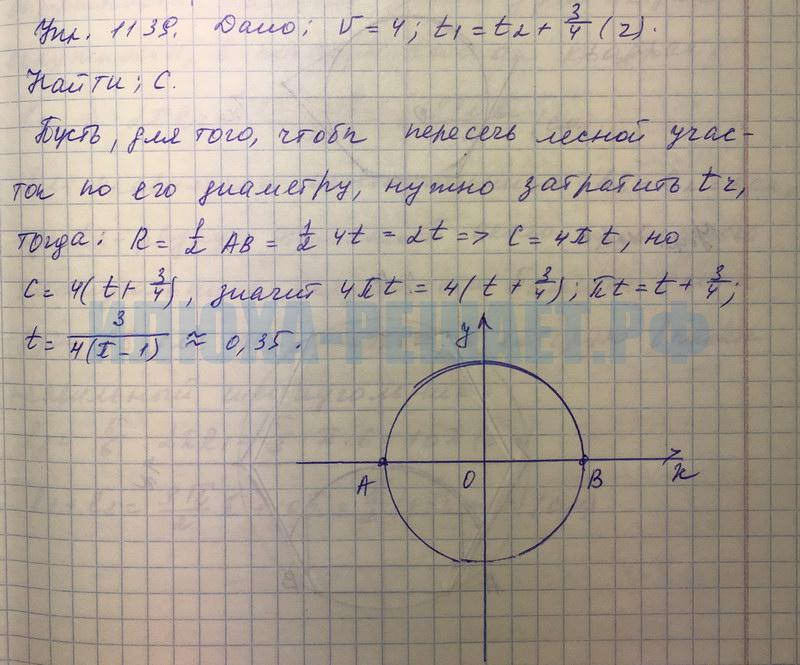 Упр. 1139. Дано: V = 4; t₁ = t₂ + 3/4 (ч).
Найти: C.
Пусть, для того, чтобы пересечь лесной учас-
ток по его диаметру, нужно затратить t ч,
тогда: R = 1/2 AB = 1/2 4t = 2t => C = 4πt, но
C = 4(t + 3/4), значит 4πt = 4(t + 3/4); πt = t + 3/4;
t = 3/4(π - 1) ≈ 0,35.
ИЛЮХА-РЕШАЕТ.РФ
y
A O B x